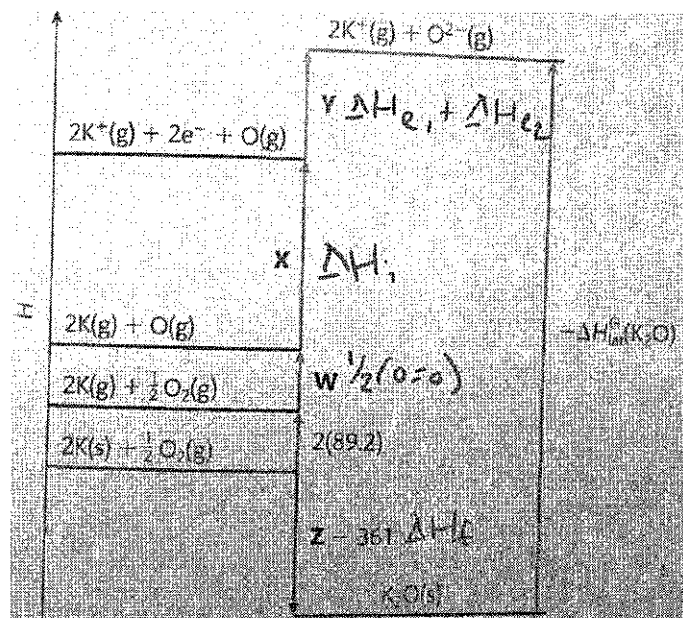 2K⁺(g) + O²⁻(g)
Y ΔHe₁ + ΔHe₂
2K⁺(g) + 2e⁻ + O(g)
X ΔHi₁
H
2K(g) + O(g)
W ½(O=O)
2K(g) + ½O₂(g)
2K(s) + ½O₂(g)
2(89.2)
Z −361 ΔHf
K₂O(s)